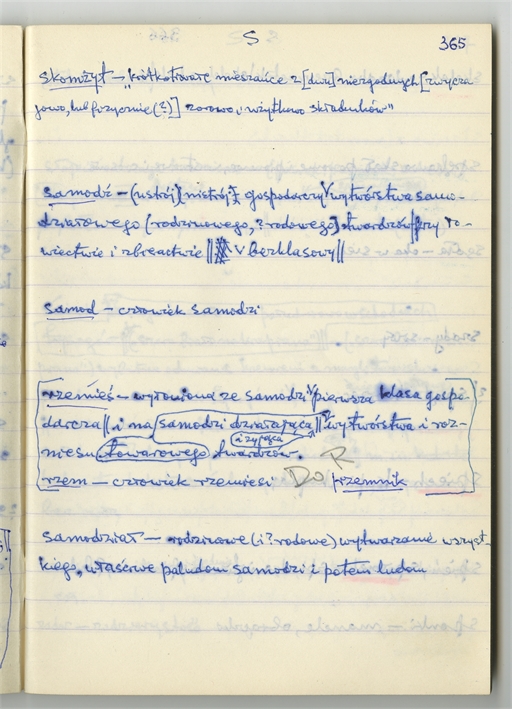 S
365
skomżył – "krótkotrwałe mieszańce z [dwu] niezgodnych [zwycza
jowo, lub fizycznie (?)] zarowo i użytkowo składników"
samodź – (ustrój) [nistrój] gospodarczy wytwórstwa samo-
działowego (rodzinowego, ? rodowego) twardzów || przy ro-
wiectwie i zbieractwie || v bezklasowy ||
samod – człowiek samodzi
rzemieś – wyłoniona ze samodzi pierwsza klasa gospo-
darcza || i na samodzi działająca || wytwórstwa i roz-
i żyjąca
miesu towarowego twardzów.
rzem – człowiek rzemiesi DO R przemnik
samodział – rodzinowe (i ? rodowe) wytwarzanie wszyst-
kiego, właściwe paludom samodzi i potem ludom